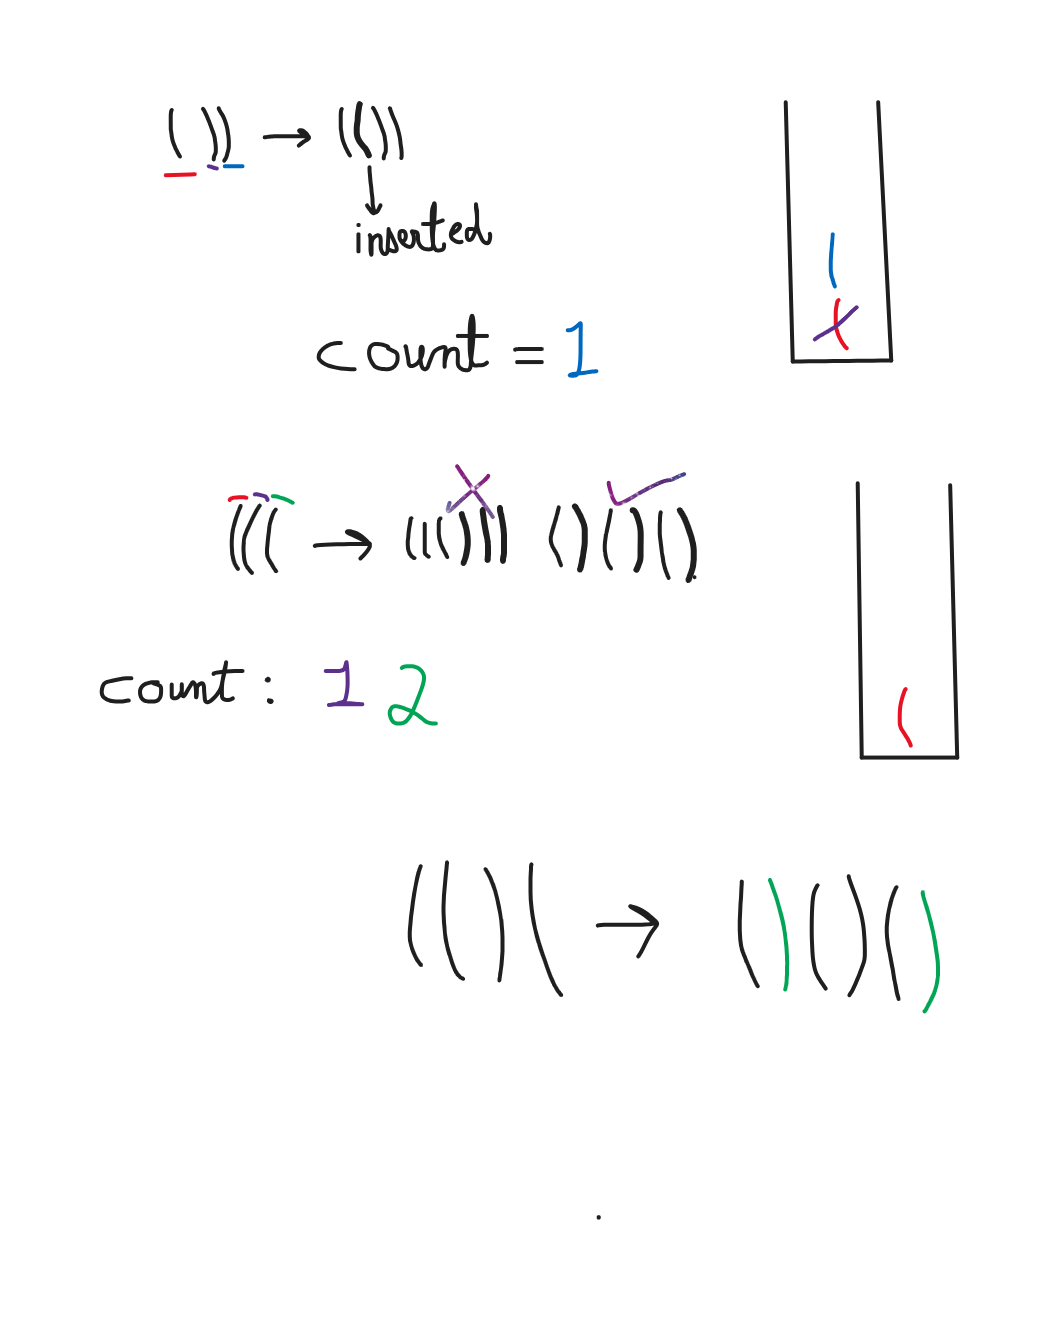 ( ) ) → ( ( ) )
inserted
count = 1
( ( ( → ( ( ( ) ) ) ( ) ( ) ( )
count : 1 2
( ( ) ( → ( ) ( ) ( )